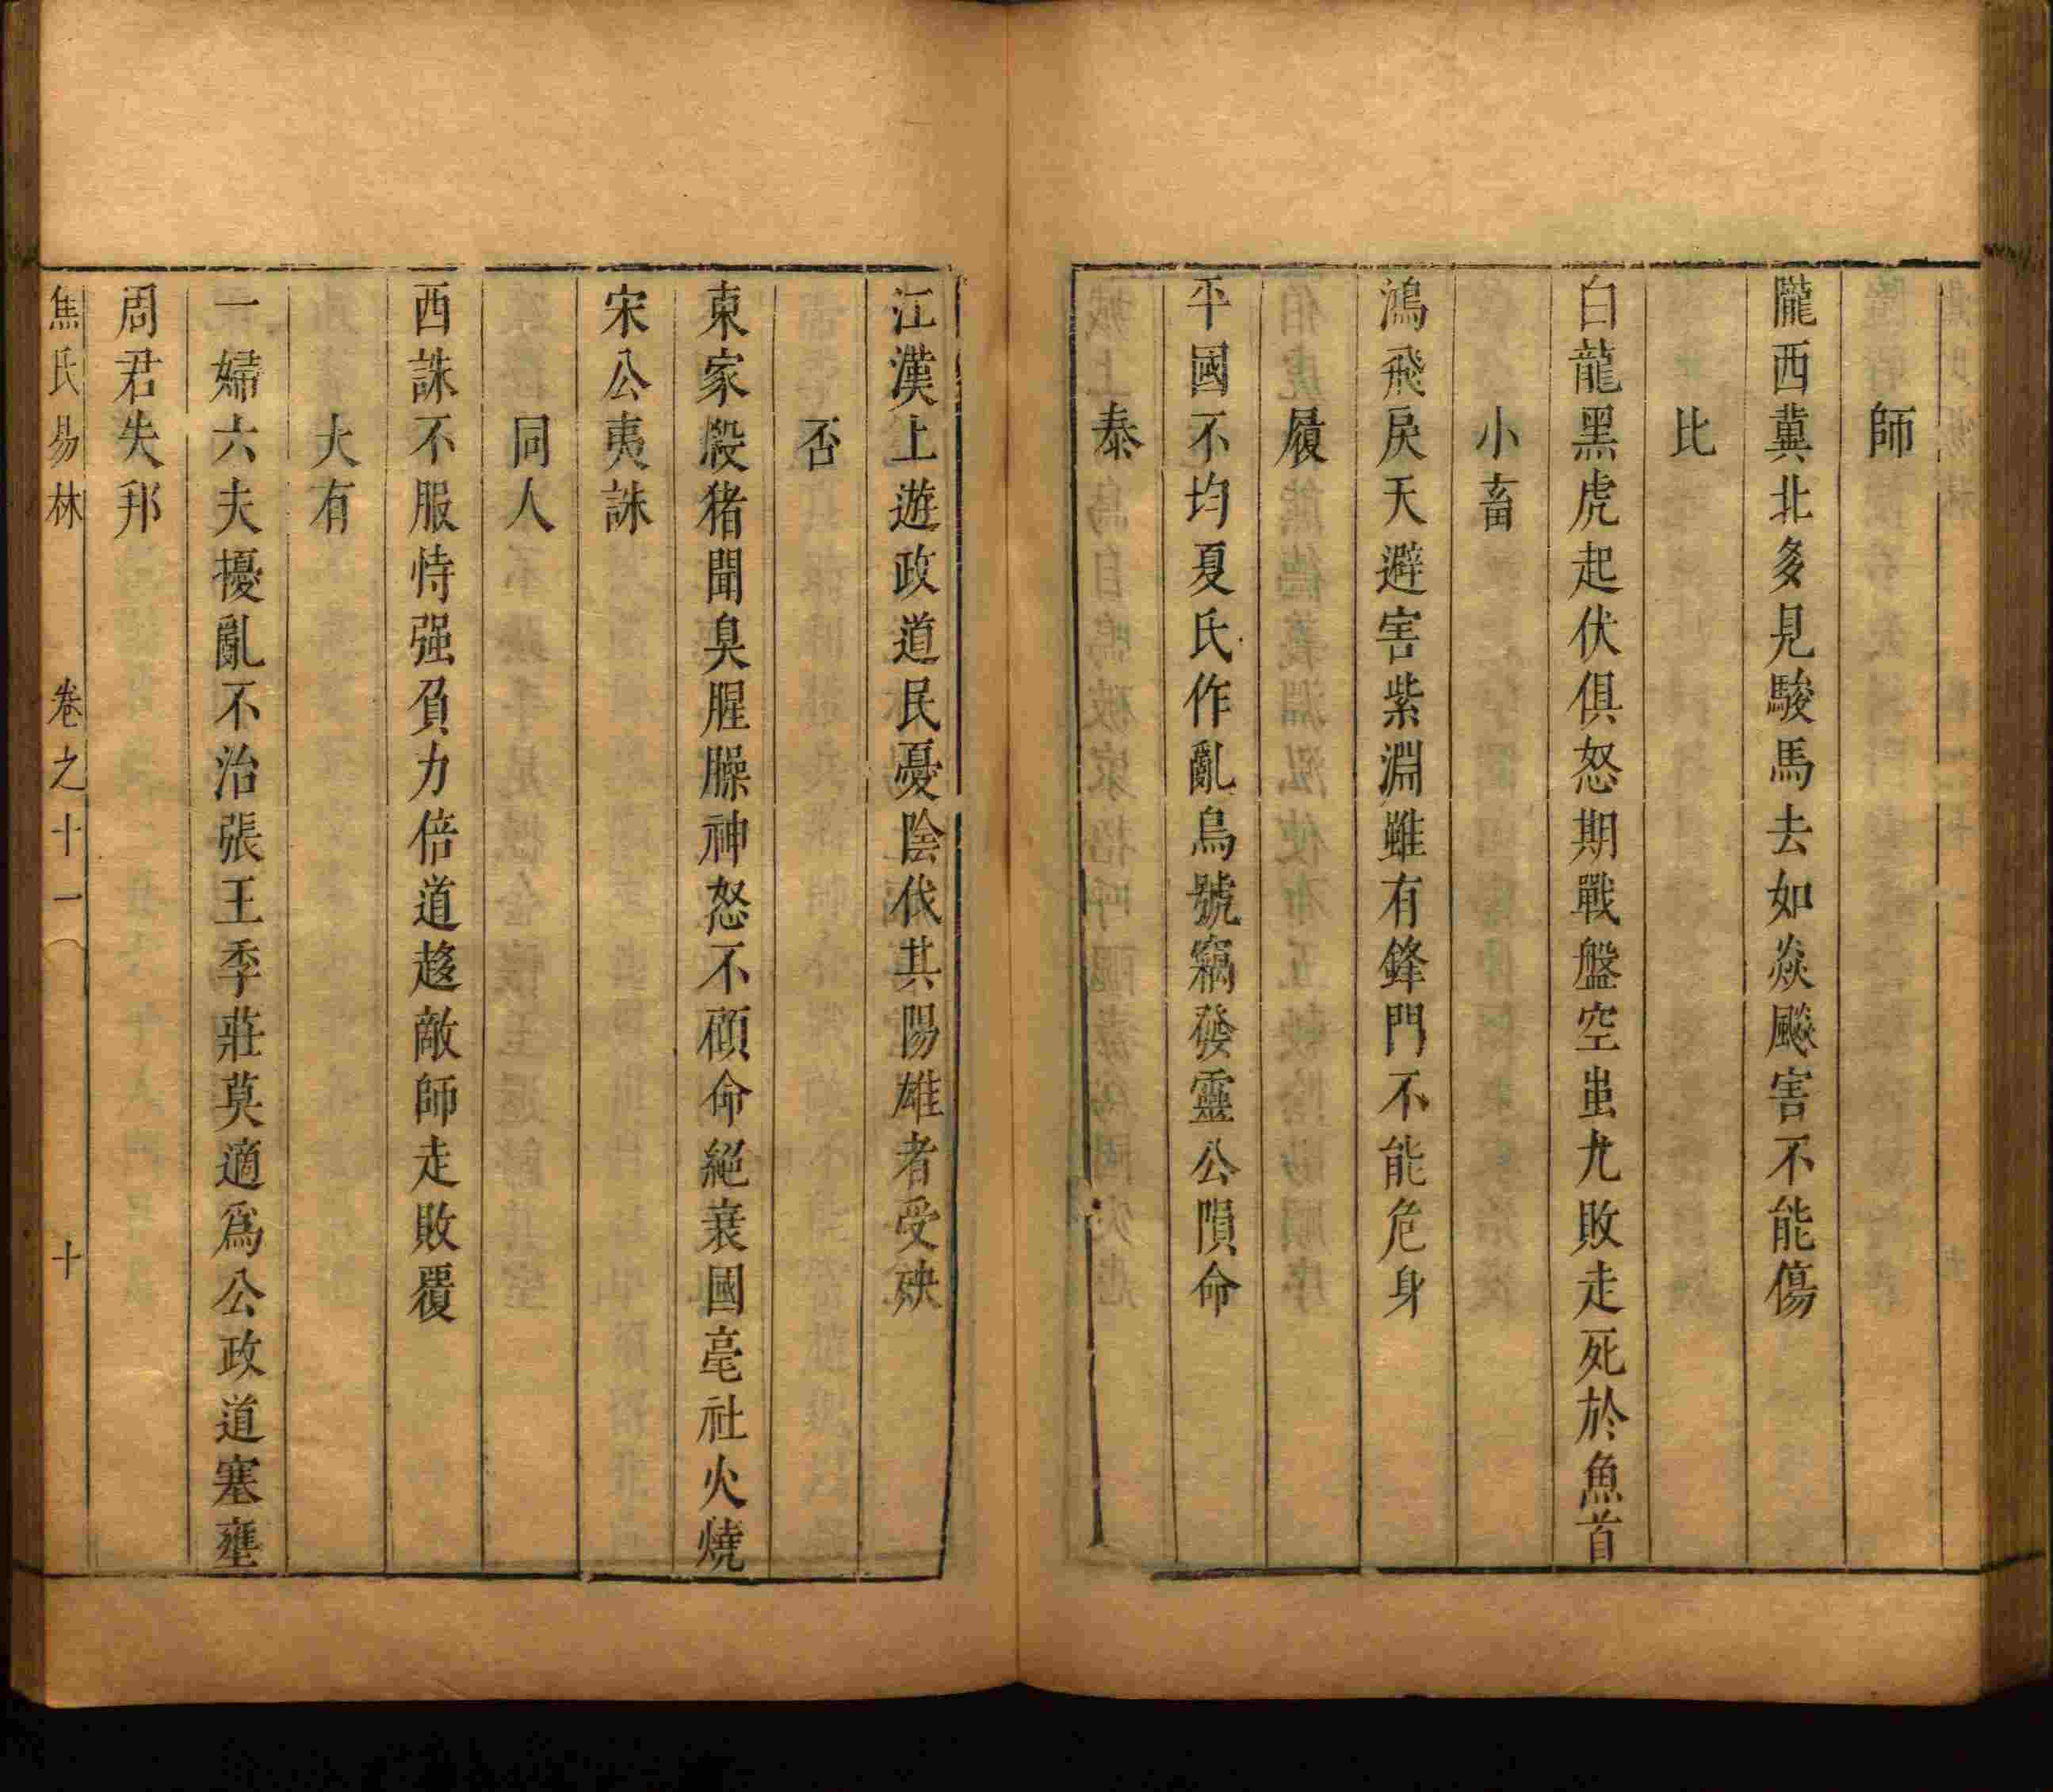 師
隴西冀北多見駿馬去如焱颷害不能傷
比
白龍黑虎起伏俱怒期戰盤空蚩尤敗走死於魚首
小畜
鴻飛戾天避害紫淵雖有鋒門不能危身
履
平國不均夏氏作亂烏號竊發靈公隕命
泰
江漢上遊政道民憂陰伐其陽雄者受殃
否
東家殺猪聞臭腥臊神怒不顧命絕衰國亳社火燒
宋公夷誅
同人
西誅不服恃强負力倍道趍敵師走敗覆
大有
一婦六夫擾亂不治張王季莊莫適爲公政道塞壅
周君失邦
焦氏易林 卷之十一 十